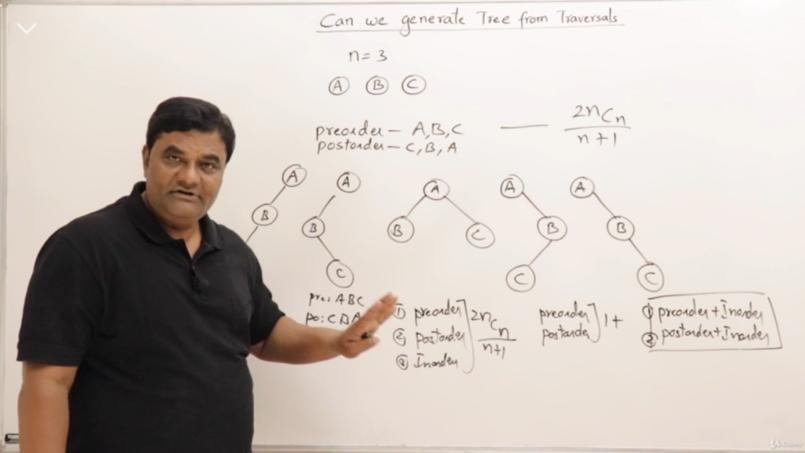 Can we generate Tree from Traversals
n=3
A B C
preorder – A,B,C — 2nCn / n+1
postorder – C,B,A
A A A A A
B B B C B B
C C C
pre: ABC
po: CBA
① preorder ] 2nCn / n+1
② postorder
③ Inorder
preorder ] 1+
postorder
① preorder+Inorder
② postorder+Inorder